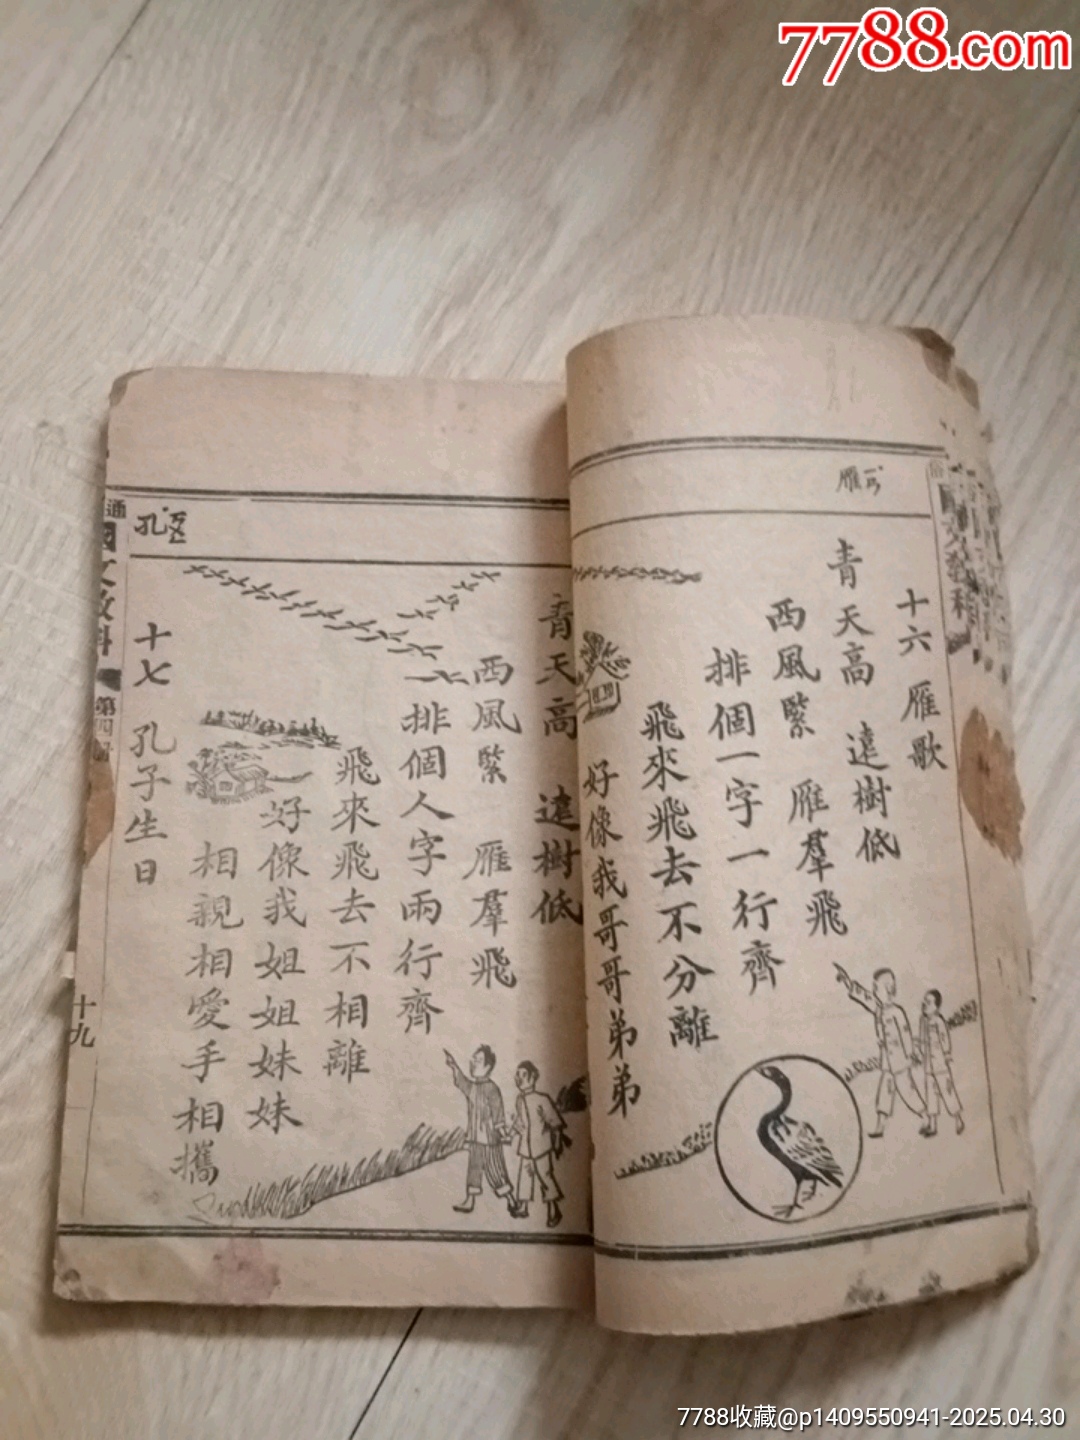 7788.com
雁
十六 雁歌
青天高 遠樹低
西風緊 雁羣飛
排個一字一行齊
飛來飛去不分離
好像我哥哥弟弟
青天高 遠樹低
西風緊 雁羣飛
排個人字兩行齊
飛來飛去不相離
好像我姐姐妹妹
相親相愛手相攜
孔
十七 孔子生日
通
國文教科
第四冊
十九
7788收藏@p1409550941-2025.04.30